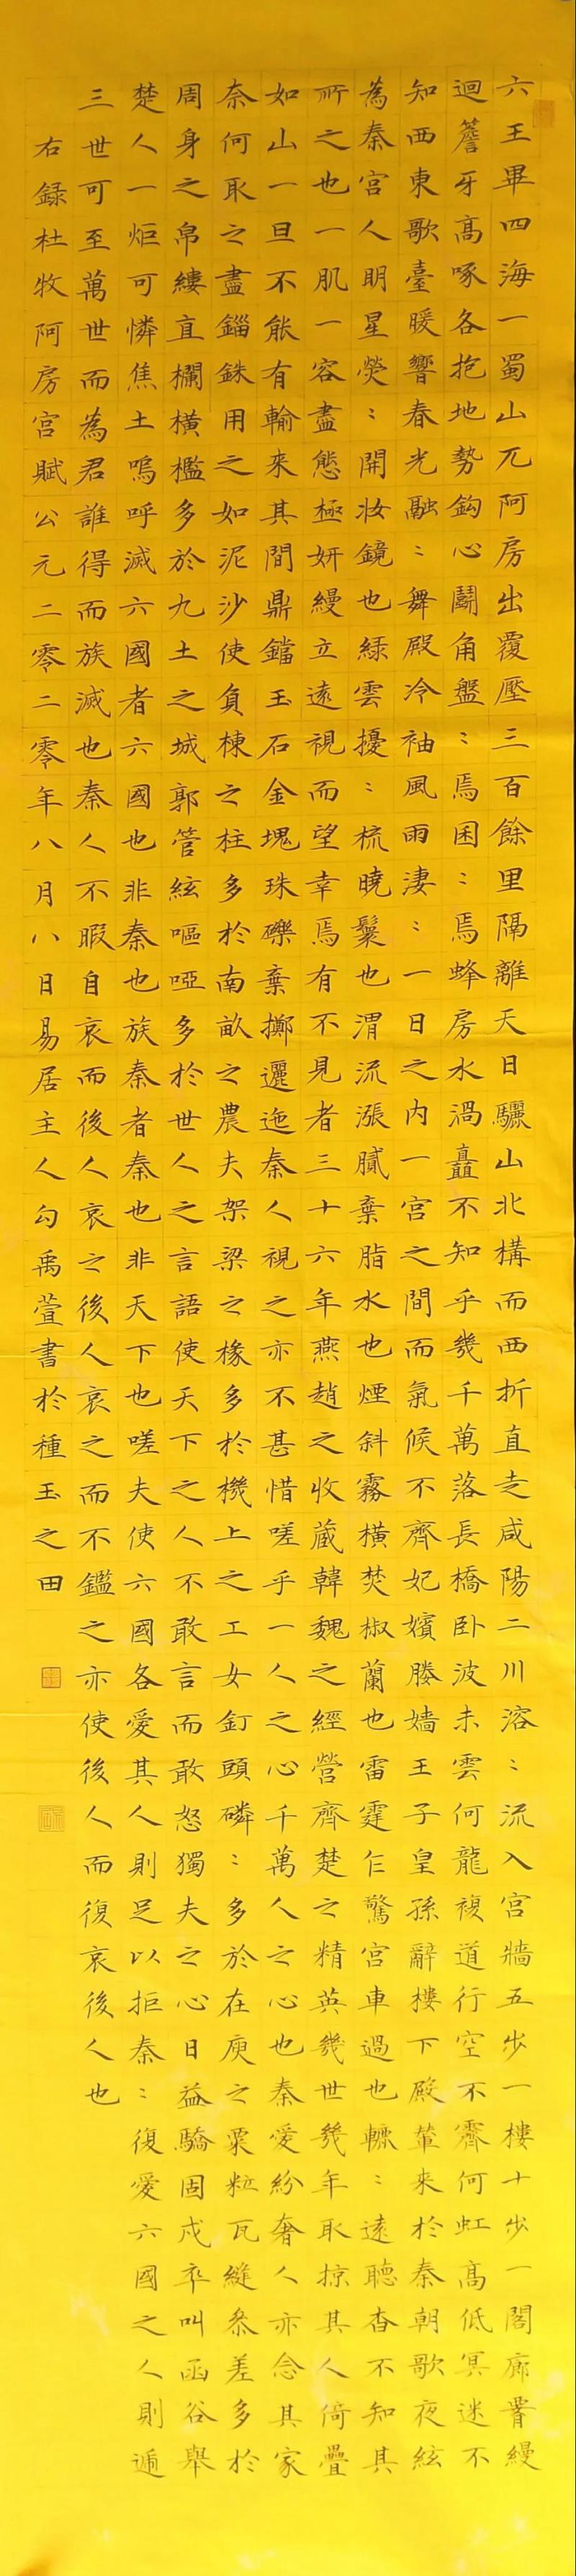 六王畢四海一蜀山兀阿房出覆壓三百餘里隔離天日驪山北構而西折直走咸陽二川溶：流入宮牆五步一樓十步一閣廊腰縵
迴簷牙高啄各抱地勢鈎心鬭角盤：焉囷：焉蜂房水渦矗不知乎幾千萬落長橋卧波未雲何龍複道行空不霽何虹高低冥迷不
知西東歌臺暖響春光融：舞殿冷袖風雨淒：一日之内一宮之間而氣候不齊妃嬪媵嬙王子皇孫辭樓下殿輦來於秦朝歌夜絃
為秦宮人明星熒：開妝鏡也綠雲擾：梳曉鬟也渭流漲膩棄脂水也煙斜霧橫焚椒蘭也雷霆乍驚宮車過也轆：遠聽杳不知其
所之也一肌一容盡態極妍縵立遠視而望幸焉有不見者三十六年燕趙之收藏韓魏之經營齊楚之精英幾世幾年取掠其人倚疊
如山一旦不能有輸來其間鼎鐺玉石金塊珠礫棄擲邐迤秦人視之亦不甚惜嗟乎一人之心千萬人之心也秦愛紛奢人亦念其家
奈何取之盡錙銖用之如泥沙使負棟之柱多於南畝之農夫架梁之椽多於機上之工女釘頭磷：多於在庾之粟粒瓦縫參差多於
周身之帛縷直欄橫檻多於九土之城郭管絃嘔啞多於世人之言語使天下之人不敢言而敢怒獨夫之心日益驕固戍卒叫函谷舉
楚人一炬可憐焦土嗚呼滅六國者六國也非秦也族秦者秦也非天下也嗟夫使六國各愛其人則足以拒秦：復愛六國之人則遞
三世可至萬世而為君誰得而族滅也秦人不暇自哀而後人哀之後人哀之而不鑑之亦使後人而復哀後人也
右錄杜牧阿房宮賦公元二零二零年八月八日易居主人勾禹萱書於種玉之田